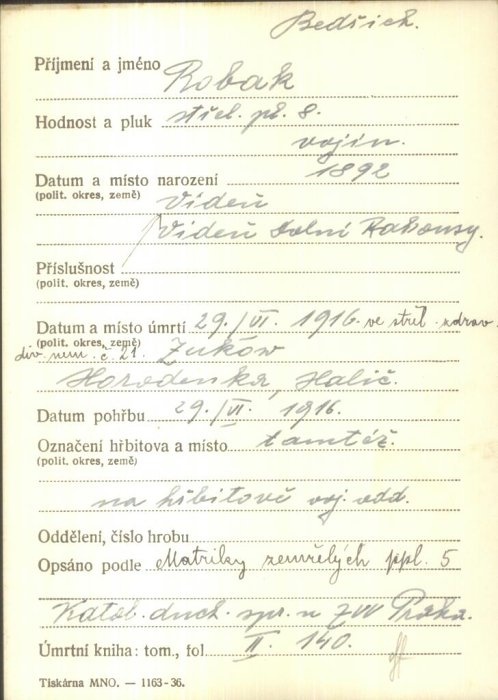 Bedřich.
Příjmení a jméno Robak
Hodnost a pluk střel. pl. 8.
vojín.
Datum a místo narození 1892
(polit. okres, země) Vídeň
Vídeň Dolní Rakousy.
Příslušnost
(polit. okres, země)
Datum a místo úmrtí 29./VI. 1916. ve střel. zdrav.
(polit. okres, země)
div. nem. č. 21. Zuków
Horodenka, Halič.
Datum pohřbu 29./VI. 1916.
Označení hřbitova a místo tamtéž.
(polit. okres, země)
na hřbitově voj. odd.
Oddělení, číslo hrobu
Opsáno podle Matriky zemřelých ppl. 5
Katol. duch. spr. u ZVV Praha.
Úmrtní kniha: tom., fol. II. 140.
Tiskárna MNO. — 1163-36.